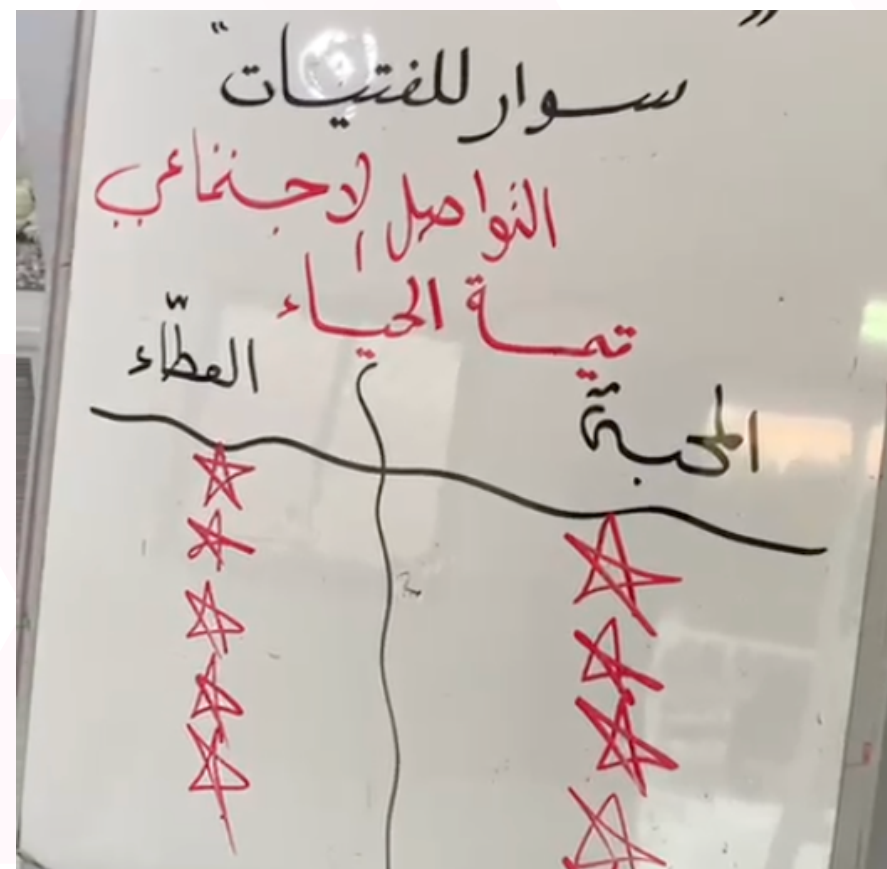 " سوار للفتيات "
التواصل الاجتماعي
قيمة الحياء
المحبة
العطاء